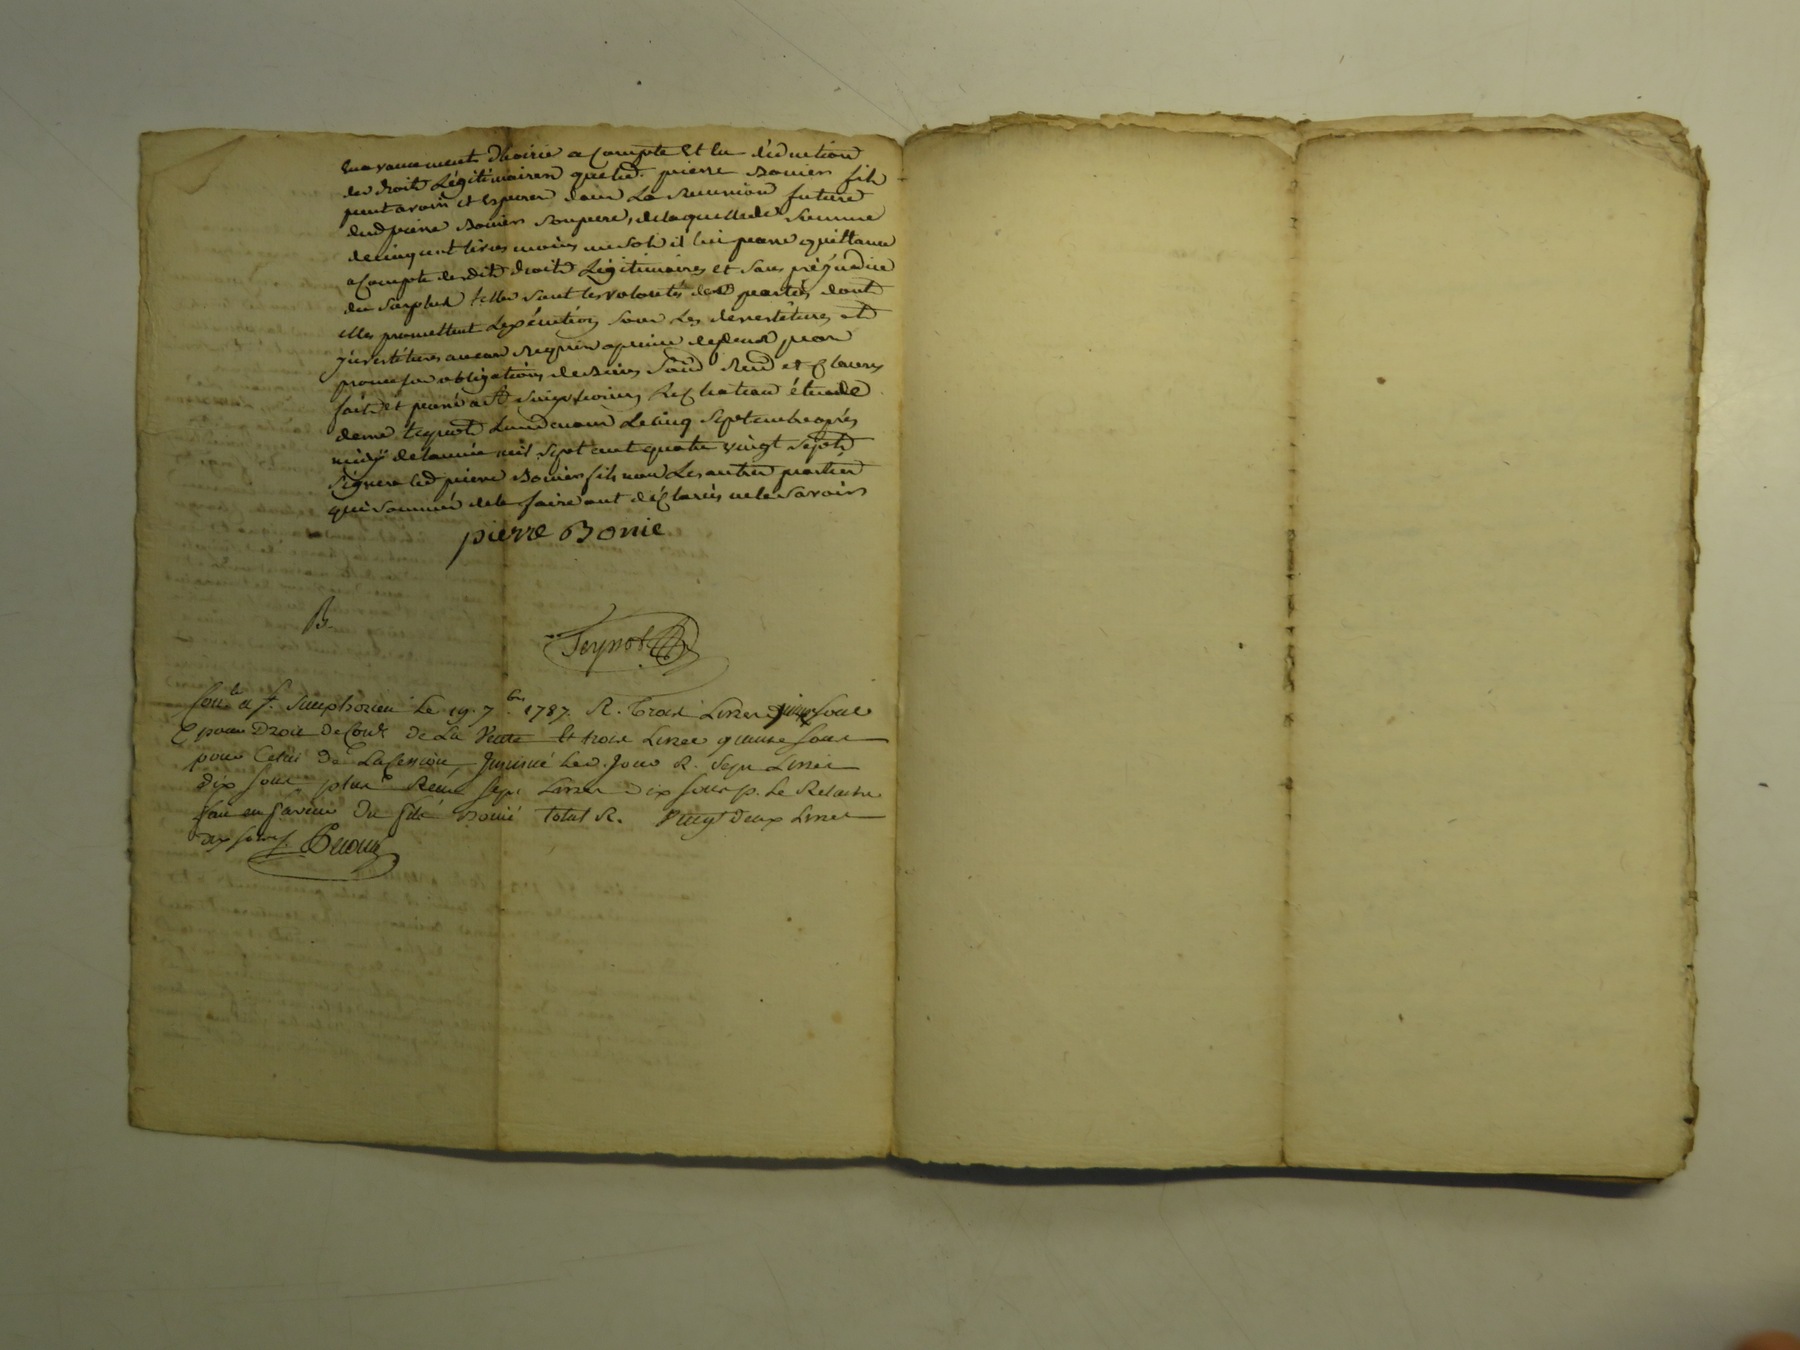 en avancements d'hoirie a compte et en deduction
des droits Légitimaires que led. pierre Bonier fils
peut avoir et Esperer dans La sucession future
dud pierre Bonier son pere, de laquelle de somme
de cinq cent livres moins un sol il lui passe quittance
a Compte desdits droits Légitimaires et sans préjudice
du surplus telles sont les volontés des parties dont
elles promettent L'exécution sous Les devestitures et
investitures au cas requis a peine de depens par
promesse obligations de Biens soud Rend et Clauses
fait et passé a St simphorien Le Chateau étude
de me teynot Lundenant Le cinq Septembre après
midy de l'année mil sept cent quatre vingt sept
signera led pierre Bonier fils non Les autres parties
qui sommés de le faire ont déclarés ne le savoir
pierre Bonie
B.
Teynot
Con.le a S. Simphorien Le 19. 7.bre 1787. R. trois Livres quinze sous
pour Droit de Con.le de La Vente Et trois Livres quinze sous
pour Celui De La Cession, Insinué led. Jour R. Sept Livres
dix sous, plus Sept Livres dix sous p. Le
fait en faveur du fils Bonié total R. Vingt deux Livres
dix sous.